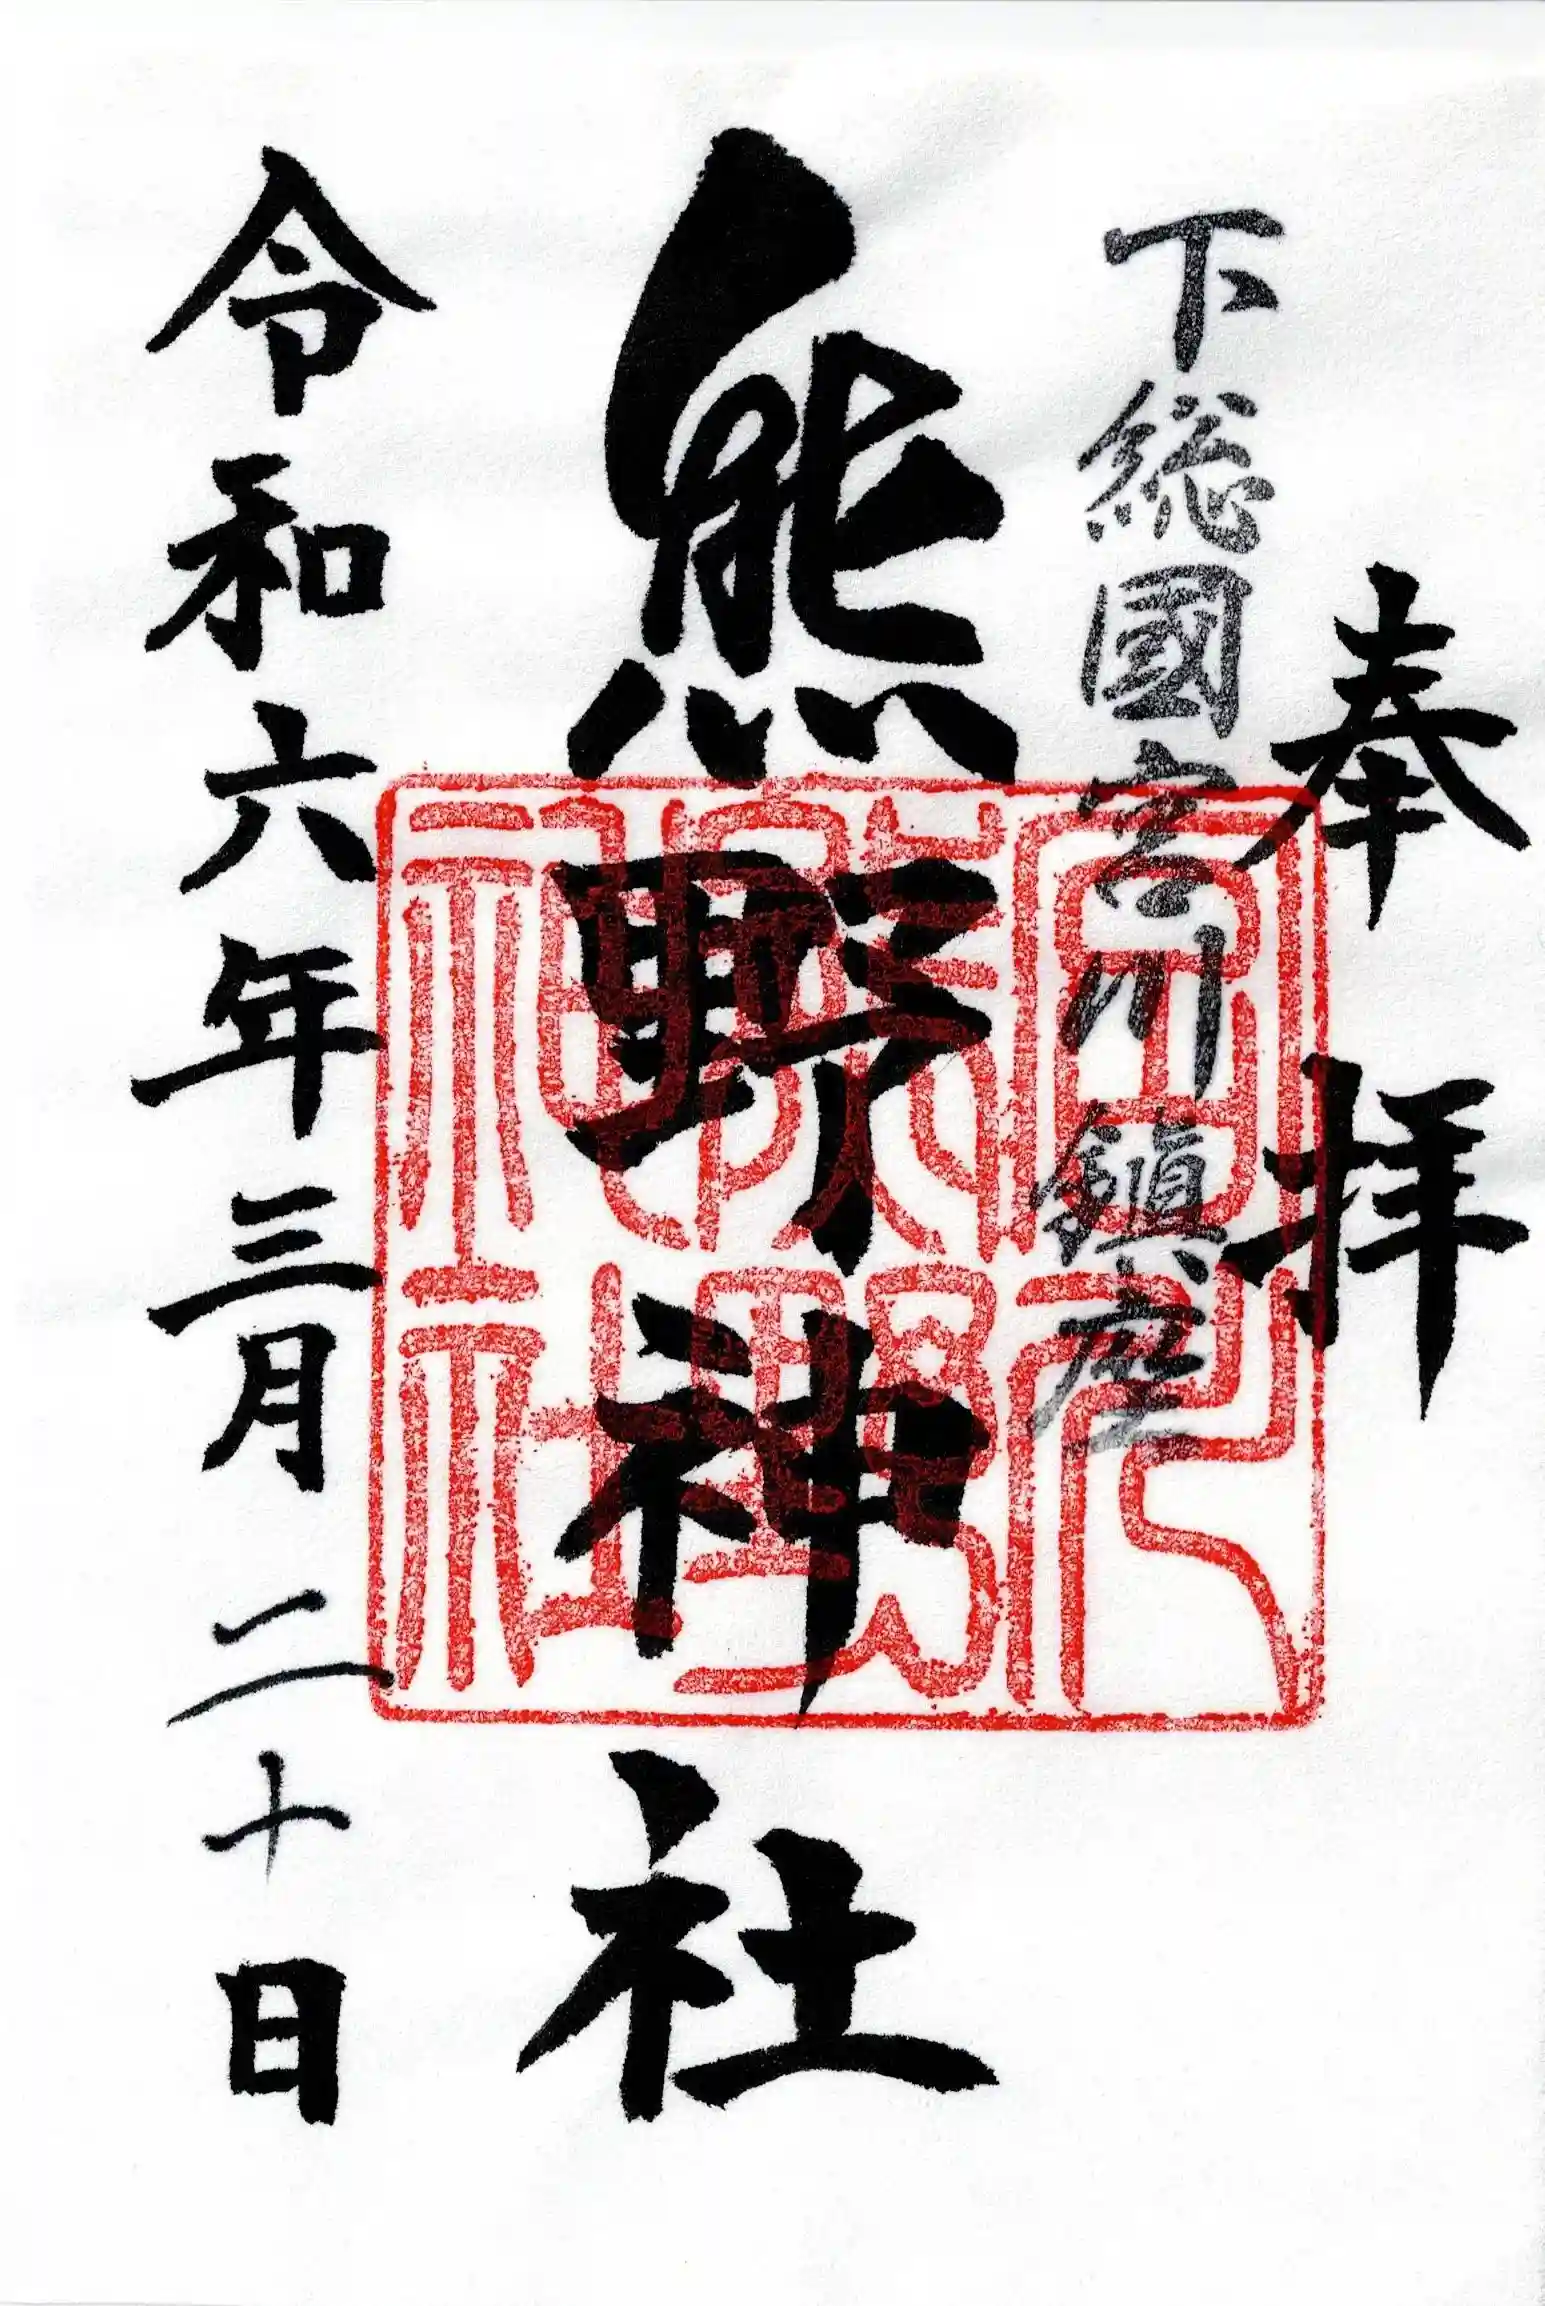 奉拝
下総國宮川鎮座
熊野神社
令和六年三月二十日
宮川熊野神社